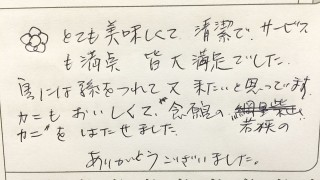 とても美味しくて 清潔で、サービス
も満点 皆大満足でした。
には孫をつれて又 きたいと思ってます
カニもおいしくて、念願の
若狭の
カニをはたせました。
ありがとうございました。